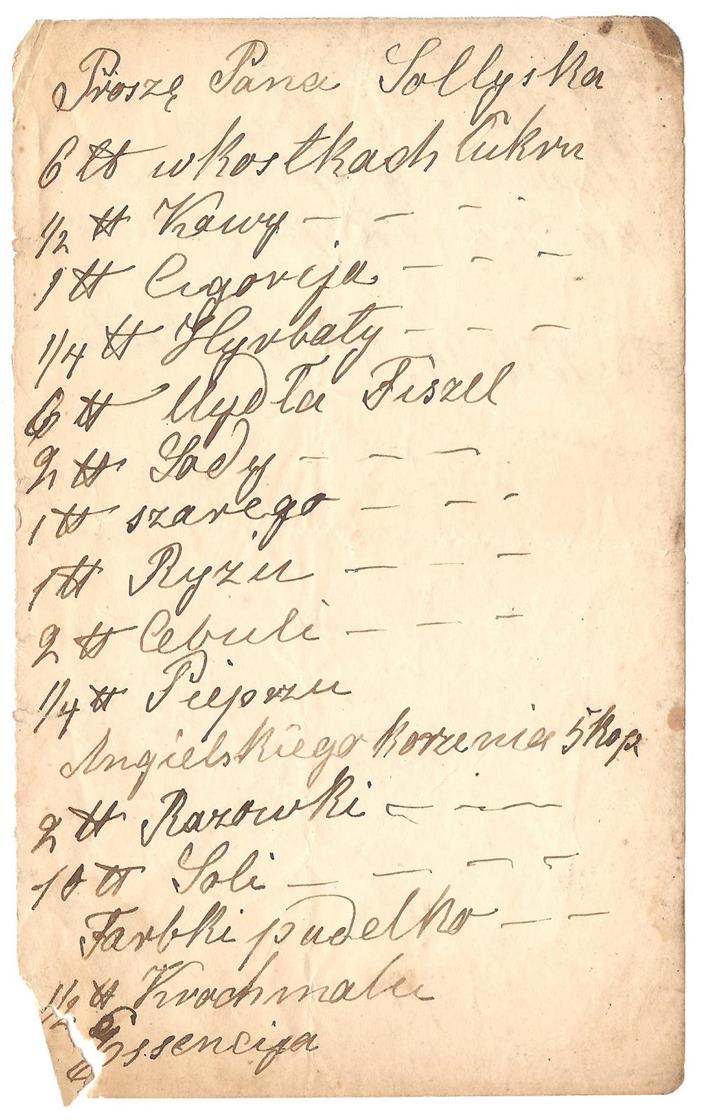 Proszę Pana Sollyska
6 ℔ w kostkach Cukru
1/2 ℔ Kawy — — -
1 ℔ Cigorija — — —
1/4 ℔ Hyrbaty — — —
6 ℔ Mydła Fiszel
2 ℔ Sody — — —
1 ℔ szarego — — -
1 ℔ Ryżu — — —
2 ℔ Cebuli — — —
1/4 ℔ Pieprzu
Angielskiego korzenia 5 kop
2 ℔ Razowki — — —
10 ℔ Soli — — — —
Farbki pudelko — —
1/2 ℔ Krochmalu
Essencija